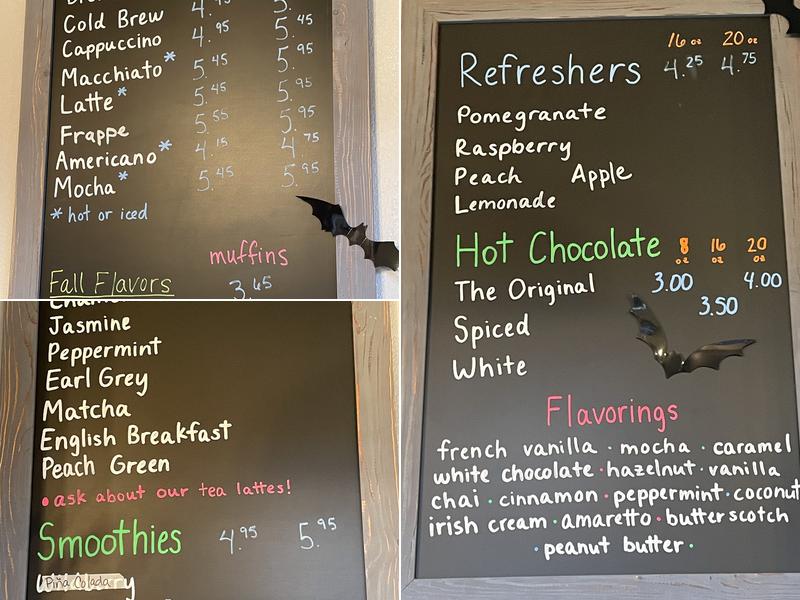 Cold Brew 4.95 5.45
Cappuccino 4.95 5.45
Macchiato* 5.45 5.95
Latte* 5.45 5.95
Frappe 5.55 5.95
Americano* 4.15 4.75
Mocha* 5.45 5.95
* hot or iced
muffins
Fall Flavors 3.45
Jasmine
Peppermint
Earl Grey
Matcha
English Breakfast
Peach Green
• ask about our tea lattes!
Smoothies 4.95 5.95
Piña Colada
16 oz 20 oz
Refreshers 4.25 4.75
Pomegranate
Raspberry
Peach Apple
Lemonade
Hot Chocolate 8 oz 16 oz 20 oz
The Original 3.00 4.00
3.50
Spiced
White
Flavorings
french vanilla · mocha · caramel
white chocolate · hazelnut · vanilla
chai · cinnamon · peppermint · coconut
irish cream · amaretto · butterscotch
· peanut butter ·